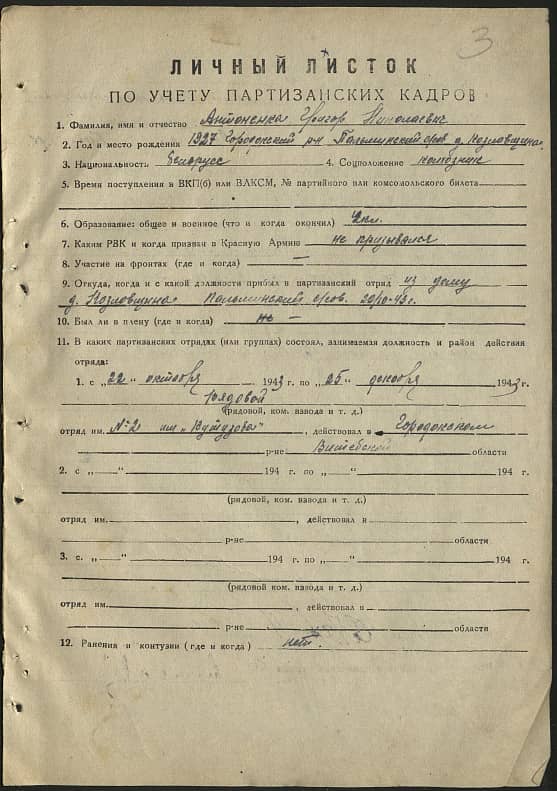 3
ЛИЧНЫЙ ЛИСТОК
ПО УЧЕТУ ПАРТИЗАНСКИХ КАДРОВ
1. Фамилия, имя и отчество Антоненко Григор Николаевич
2. Год и место рождения 1927 Городокский р-н Пальминский с/сов. д. Козловщина
3. Национальность белорусс 4. Соцположение колхозник
5. Время поступления в ВКП(б) или ВЛКСМ, № партийного или комсомольского билета
6. Образование: общее и военное (что и когда окончил) кл.
7. Каким РВК и когда призван в Красную Армию не призывался
8. Участие на фронтах (где и когда) —
9. Откуда, когда и с какой должности прибыл в партизанский отряд из дому
д. Козловщина Пальминский с/сов. 20/10-43 г.
10. Был ли в плену (где и когда) не —
11. В каких партизанских отрядах (или группах) состоял, занимаемая должность и район действия
отряда:
1. с „22" октября 1943 г. по „25" декабря 1943 г.
Рядовой
(рядовой, ком. взвода и т. д.)
отряд им. №2 им „Кутузова", действовал в Городокском
р-не Витебской области
2. с „—" 194 г. по „—" 194 г.
(рядовой, ком. взвода и т. д.)
отряд им. , действовал в
р-не области
3. с „—" 194 г. по „—" 194 г.
(рядовой, ком. взвода и т. д.)
отряд им. , действовал в
р-не области
12. Ранения и контузии (где и когда) нет.